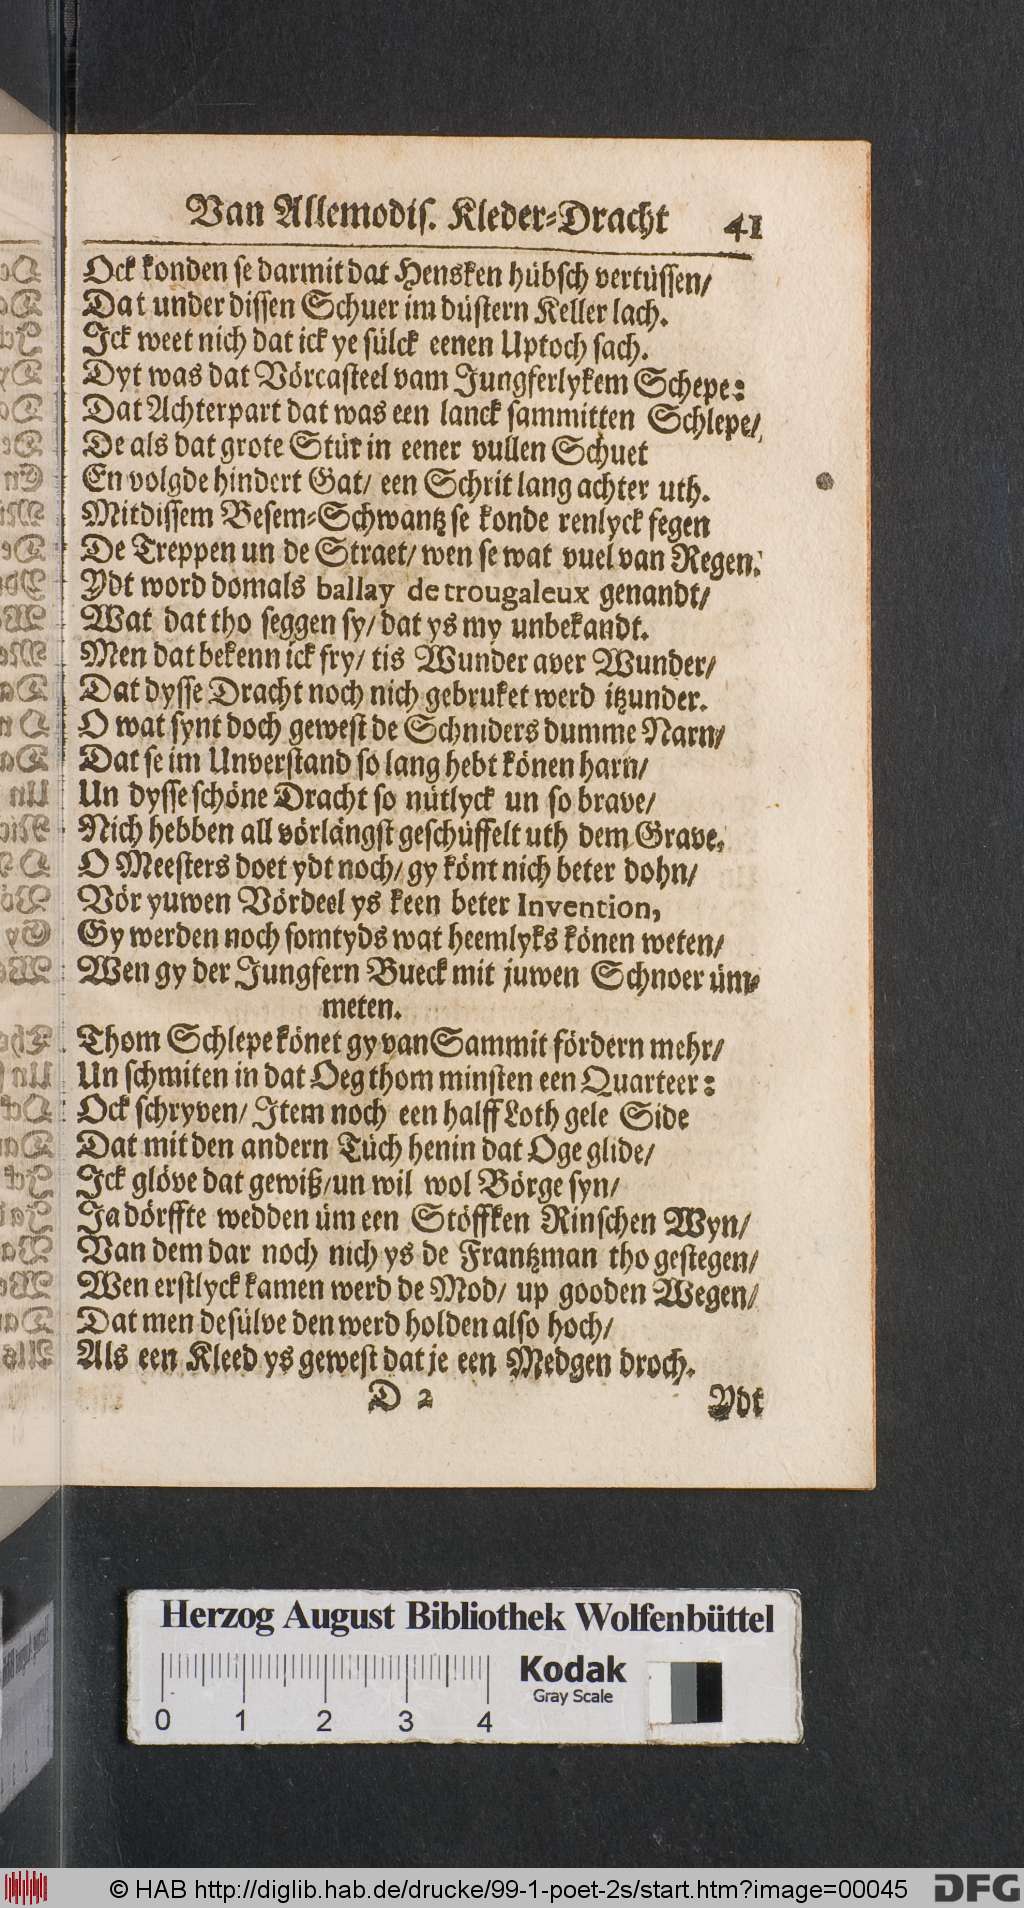 Van Allemodis. Kleder-Dracht 41
Ock konden se darmit dat Hensken hübsch vertüssen/
Dat under dissen Schuer im düstern Keller lach.
Ick weet nich dat ick ye sülck eenen Uptoch sach.
Dyt was dat Vörcasteel vam Jungferlykem Schepe:
Dat Achterpart dat was een lanck sammitten Schlepe/
De als dat grote Stür in eener vullen Schuet
En volgde hindert Gat/ een Schrit lang achter uth.
Mit dissem Besem-Schwantz se konde renlyck fegen
De Treppen un de Straet/ wen se wat vuel van Regen.
Ydt word domals ballay de trougaleux genandt/
Wat dat tho seggen sy/ dat ys my unbekandt.
Men dat bekenn ick fry/ tis Wunder aver Wunder/
Dat dysse Dracht noch nich gebruket werd itzunder.
O wat synt doch gewest de Schniders dumme Narn/
Dat se im Unverstand so lang hebt könen harn/
Un dysse schöne Dracht so nütlyck un so brave/
Nich hebben all vörlängst geschüffelt uth dem Grave.
O Meesters doet ydt noch/ gy könt nich beter dohn/
Vör yuwen Vördeel ys keen beter Invention,
Gy werden noch somtyds wat heemlyks könen weten/
Wen gy der Jungfern Bueck mit juwen Schnoer üm-
meten.
Thom Schlepe könet gy van Sammit fördern mehr/
Un schmiten in dat Oeg thom minsten een Quarteer:
Ock schryven/ Item noch een halff Loth gele Side
Dat mit den andern Tüch henin dat Oge glide/
Ick glöve dat gewiß/ un wil wol Börge syn/
Ja dörffte wedden üm een Stöffken Rinschen Wyn/
Van dem dar noch nich ys de Frantzman tho gestegen/
Wen erstlyck kamen werd de Mod/ up gooden Wegen/
Dat men desülve den werd holden also hoch/
Als een Kleed ys gewest dat je een Medgen droch.
D 2 Ydt
Herzog August Bibliothek Wolfenbüttel
Kodak
Gray Scale
0 1 2 3 4
© HAB http://diglib.hab.de/drucke/99-1-poet-2s/start.htm?image=00045
DFG